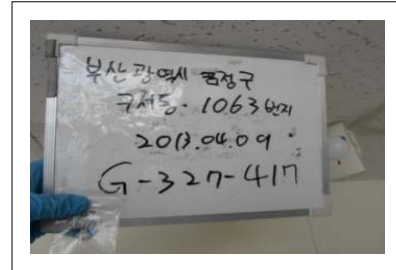 부산광역시 금정구
구서동. 1063번지
2013.04.09
G-327-417